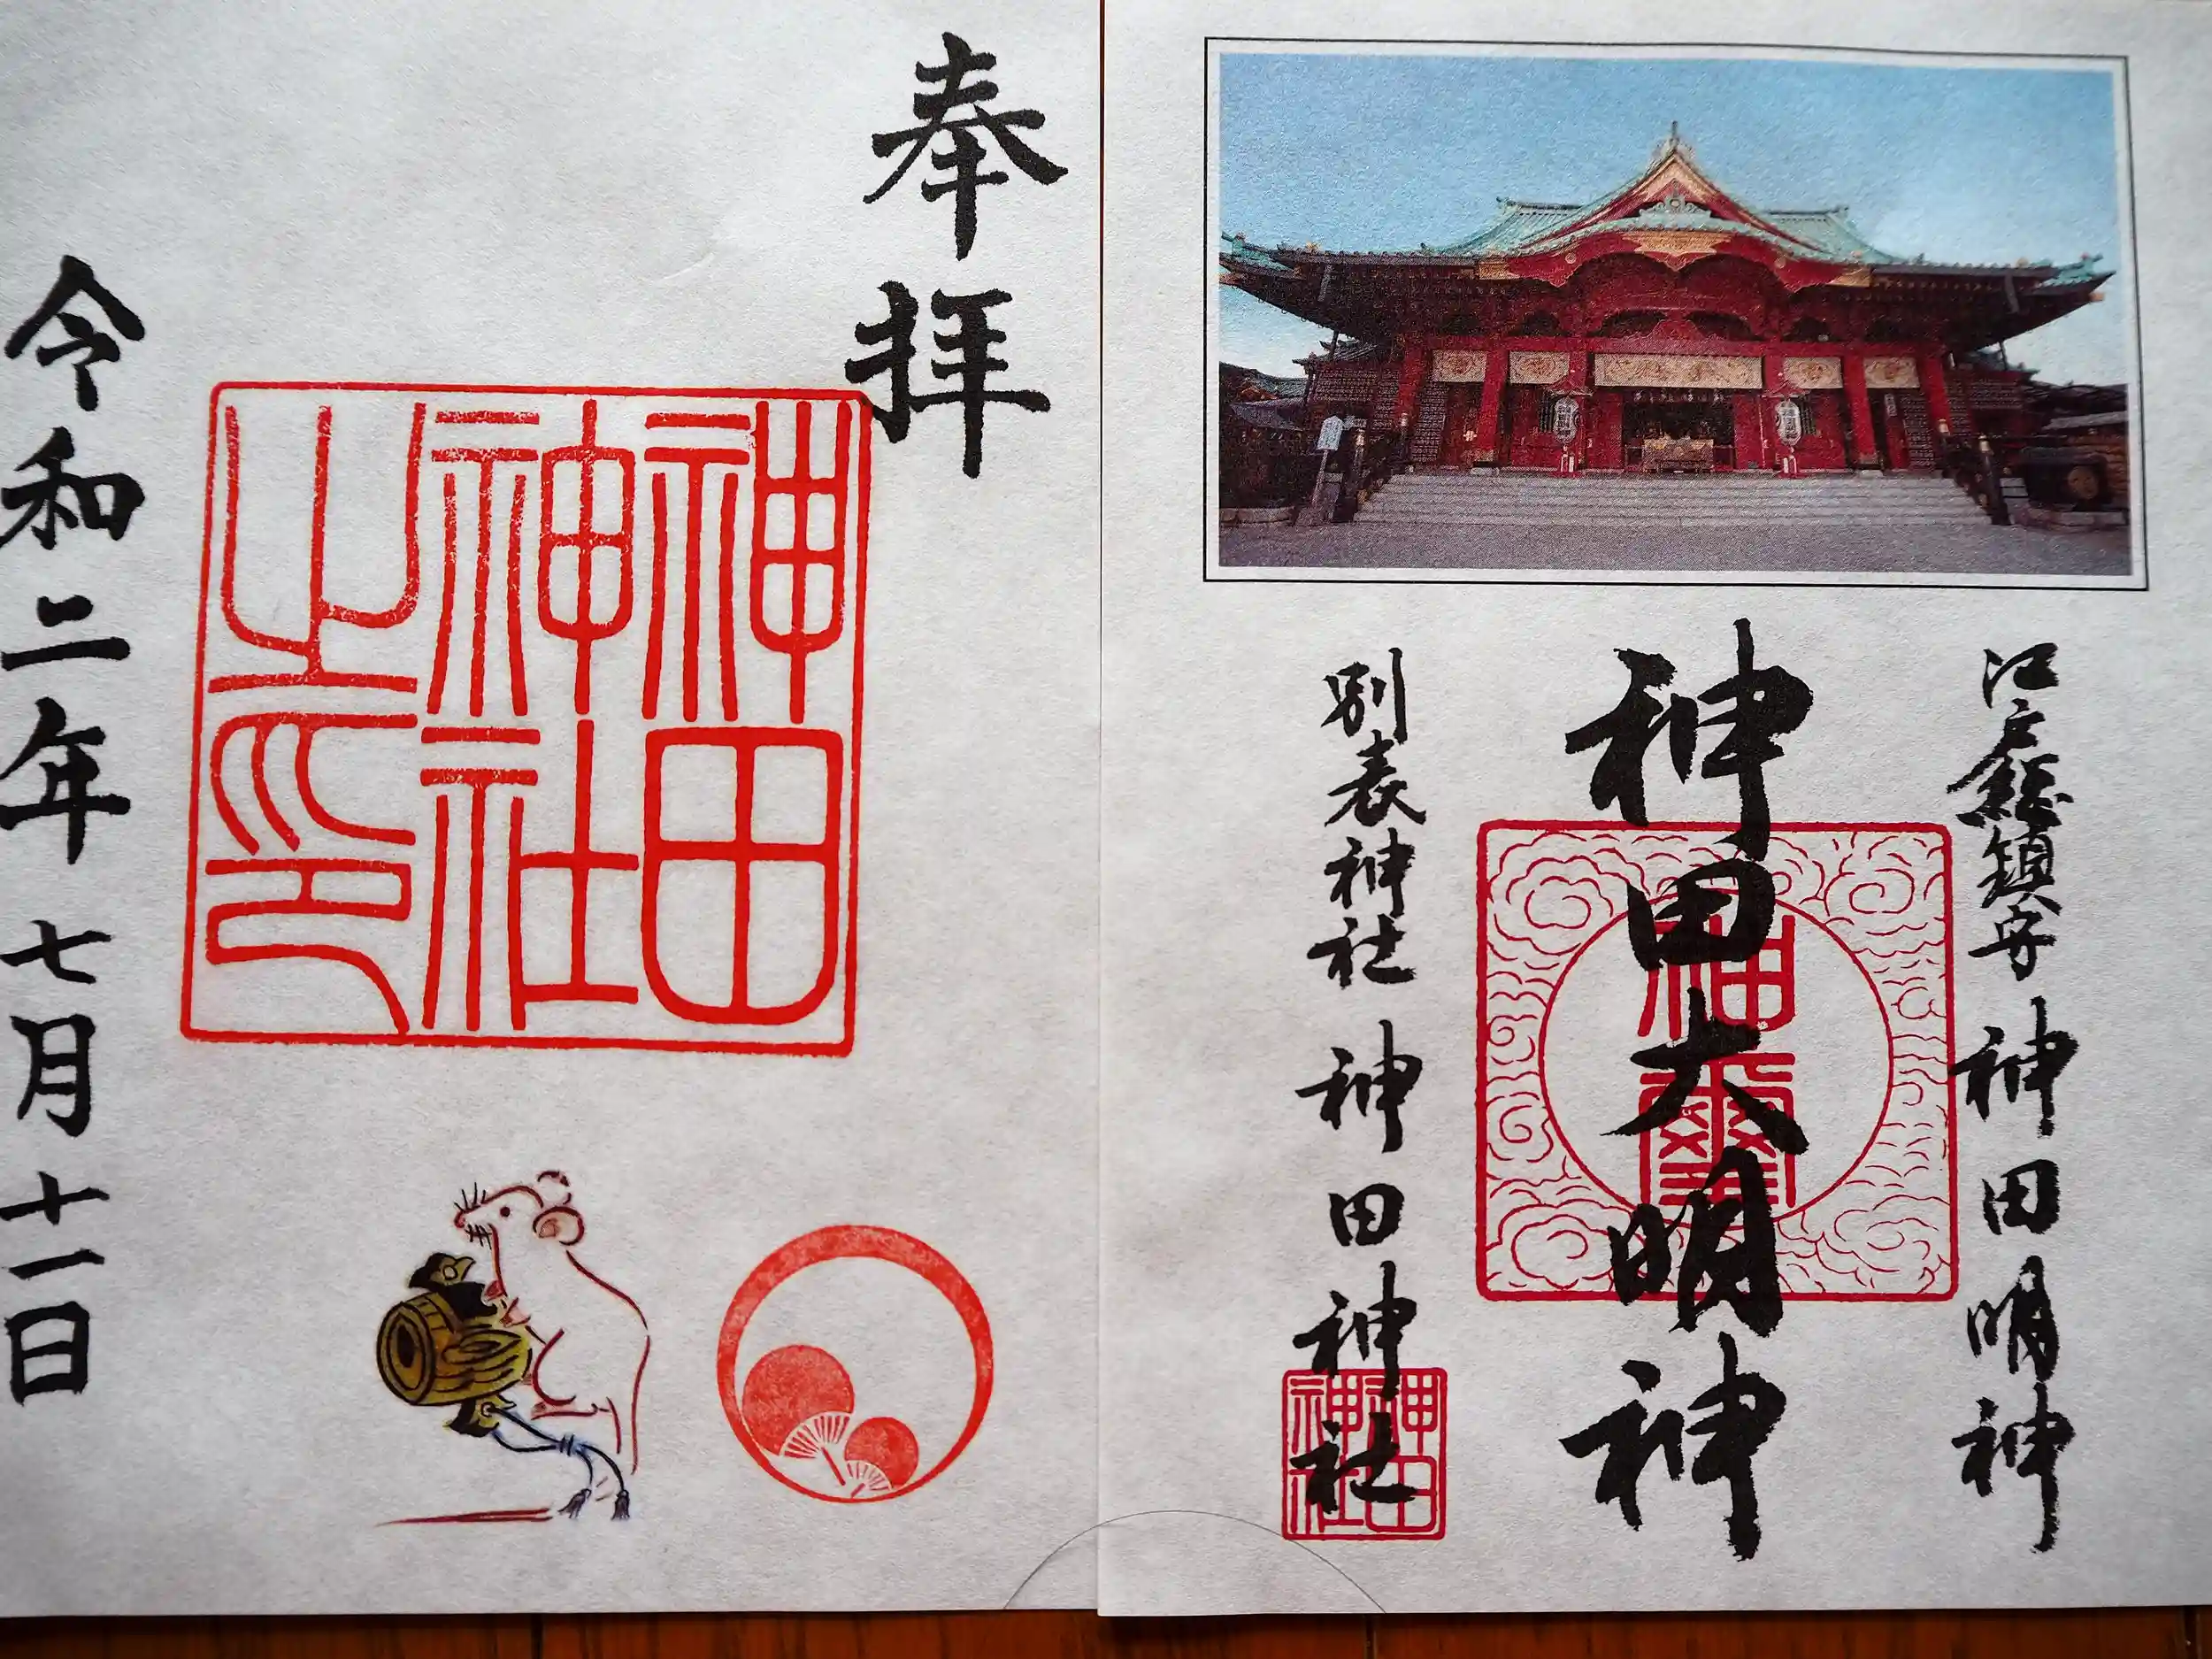 奉拝
神田
神社
之印
令和二年 七月十一日
江戸總鎮守 神田明神
神田大明神
神璽
別表神社 神田神社
神田
神社